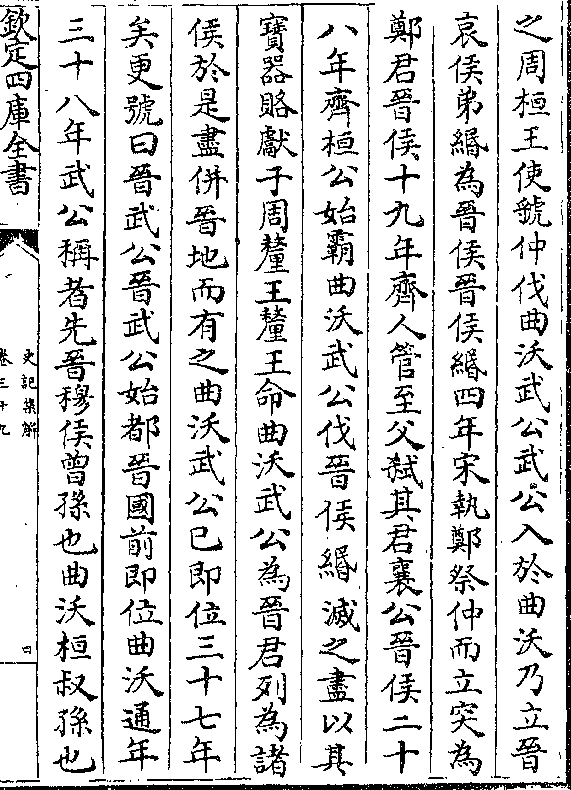 之周桓王使虢仲伐曲沃武公武公入於曲沃乃立晉
哀侯弟緡為晉侯晉侯緡四年宋執鄭祭仲而立突為
鄭君晉侯十九年齊人管至父弑其君襄公晉侯二十
八年齊桓公始霸曲沃武公伐晉侯緡滅之盡以其
寶器賂獻于周釐王釐王命曲沃武公為晉君列為諸
侯於是盡併晉地而有之曲沃武公已即位三十七年
矣更號曰晉武公晉武公始都晉國前即位曲沃通年
三十八年武公稱者先晉穆侯曾孫也曲沃桓叔孫也
欽定四庫全書
史記集解
卷三十九
四